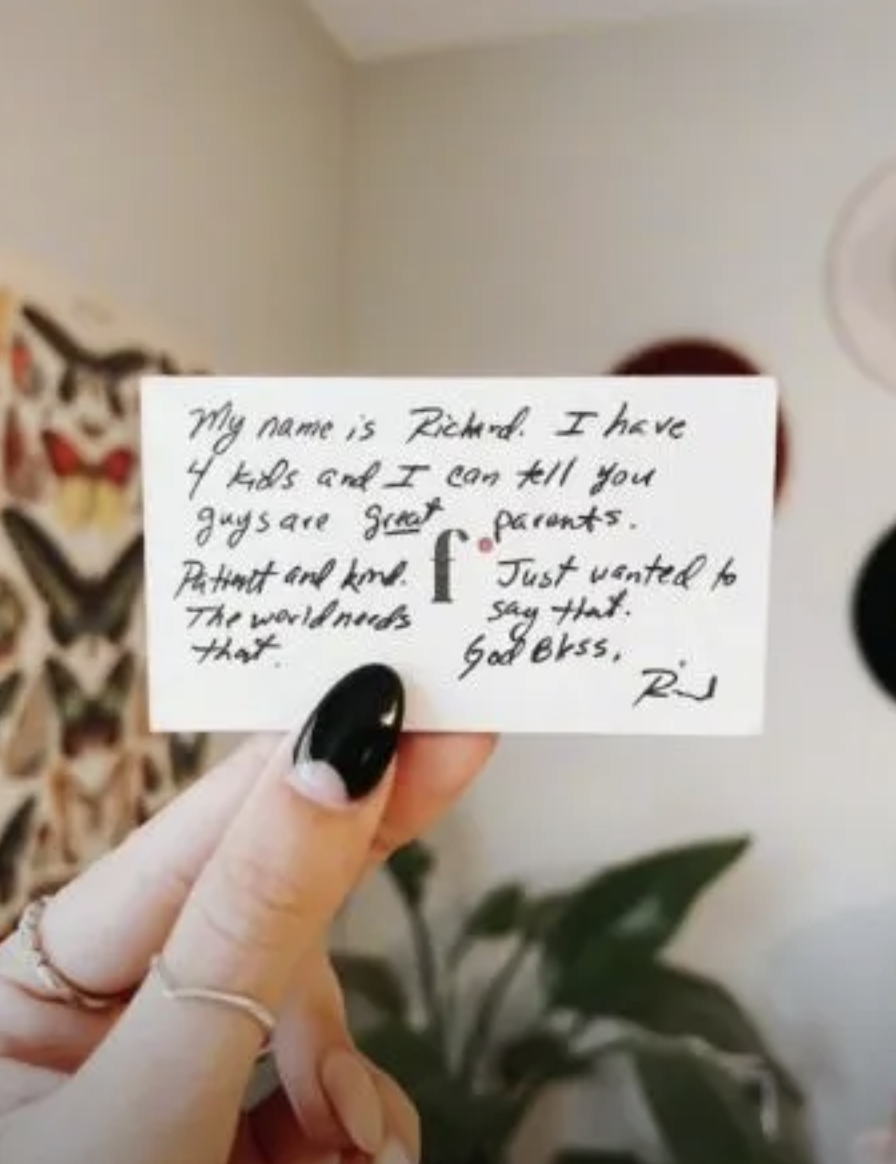 My name is Richard. I have
4 kids and I can tell you
guys are great parents.
f
Patient and kind.
The world needs
that.
Just wanted to
say that.
God Bless,